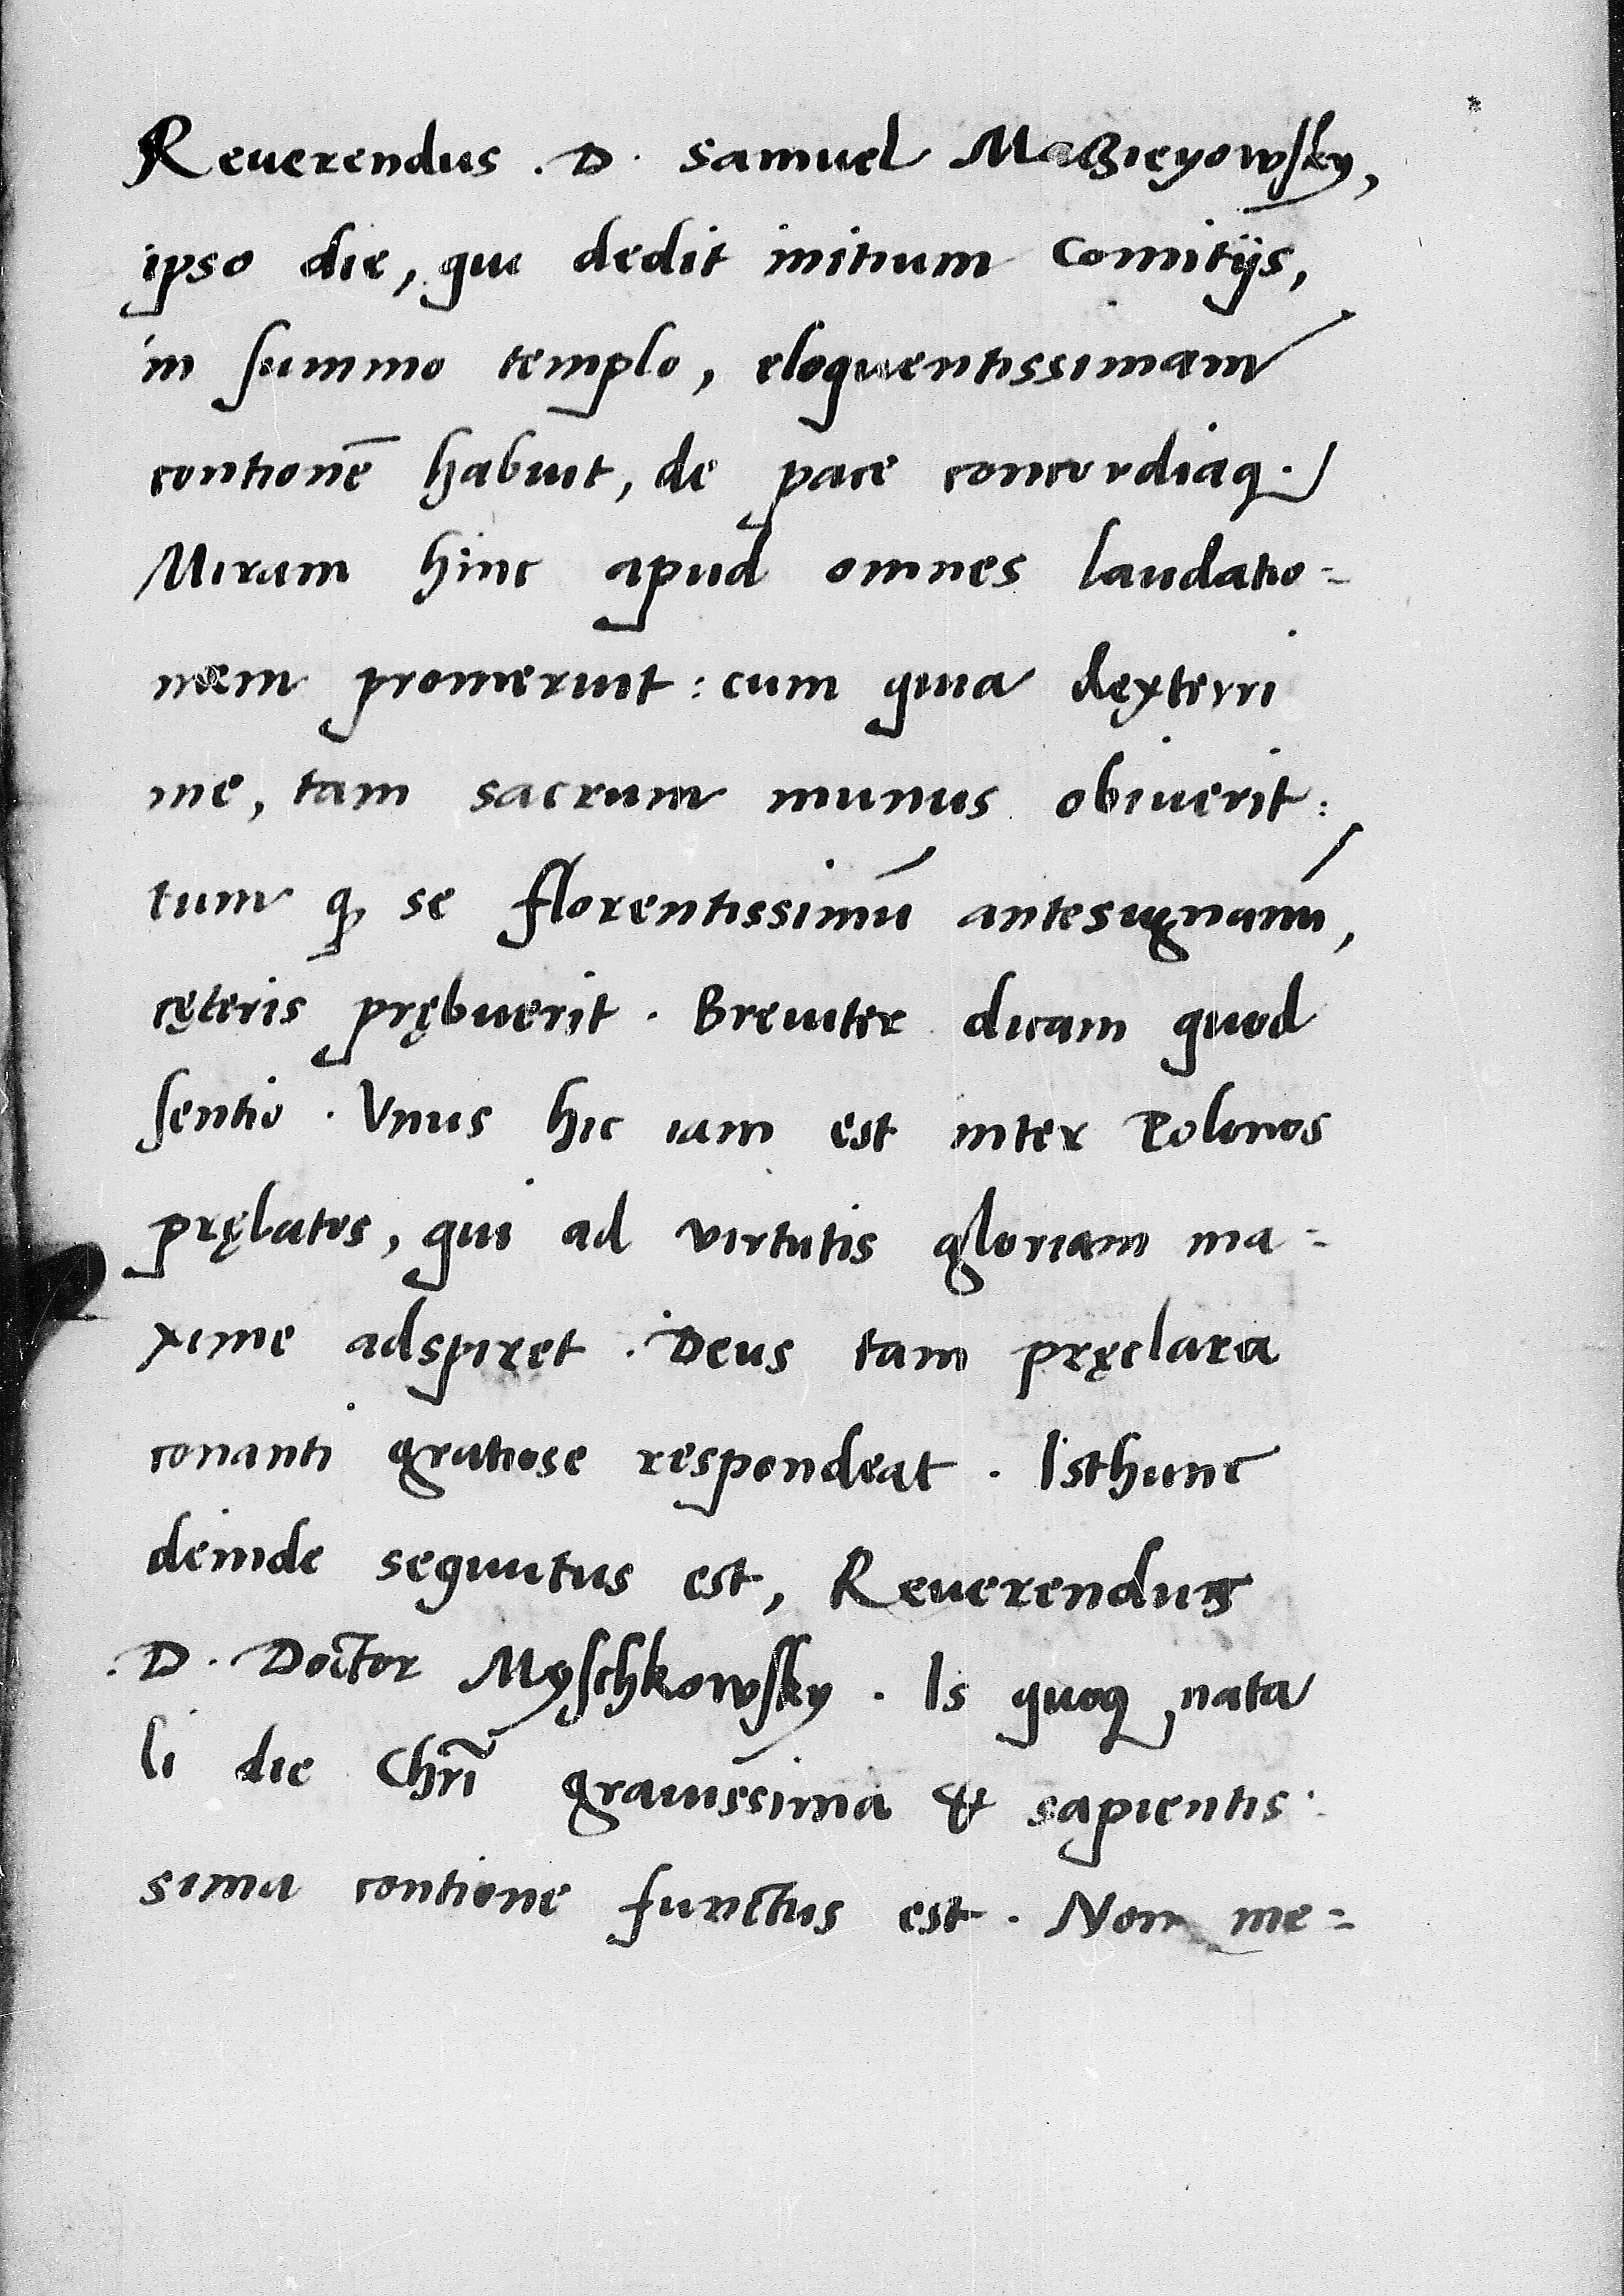 Reuerendus .D. Samuel Maczieyowsky,
ipso die, qui dedit initium Comitijs,
in summo templo, eloquentissimam
contionē habuit, de pace concordiaq.
Miram hinc apud omnes laudatio=
nem promeruit: cum quia dexterri
me, tam sacrum munus obiuerit:
tum ꝙ se florentissimū antesignanū,
cęteris prębuerit. Breuiter dicam quod
sentio. Vnus hic iam est inter Polonos
pręlatos, qui ad virtutis gloriam ma=
xime adspiret. Deus tam pręclara
conanti gratiose respondeat. Isthunc
deinde sequutus est, Reuerendus
.D. Doctor Myschkowsky. Is quoq, nata
li die Chrī grauissima & sapientis
sima contione functus est. Non me=